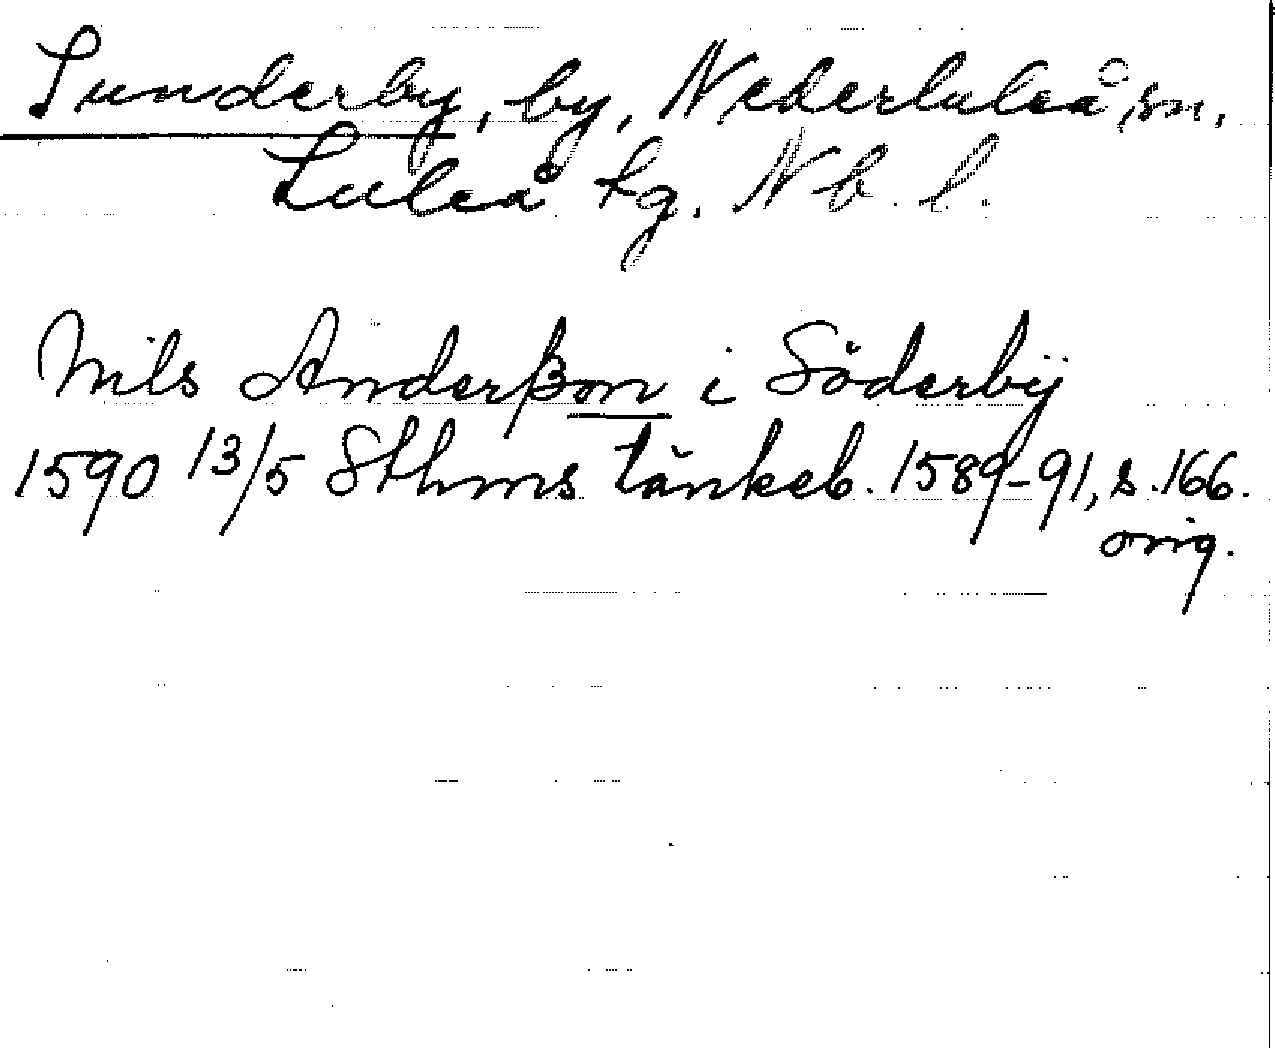 Sunderby, by, Nederluleå sn,
Luleå tg. Nb. l.
Nils Anderßon i Söderbÿ
1590 13/5 Sthms tänkeb. 1589-91, s. 166.
orig.